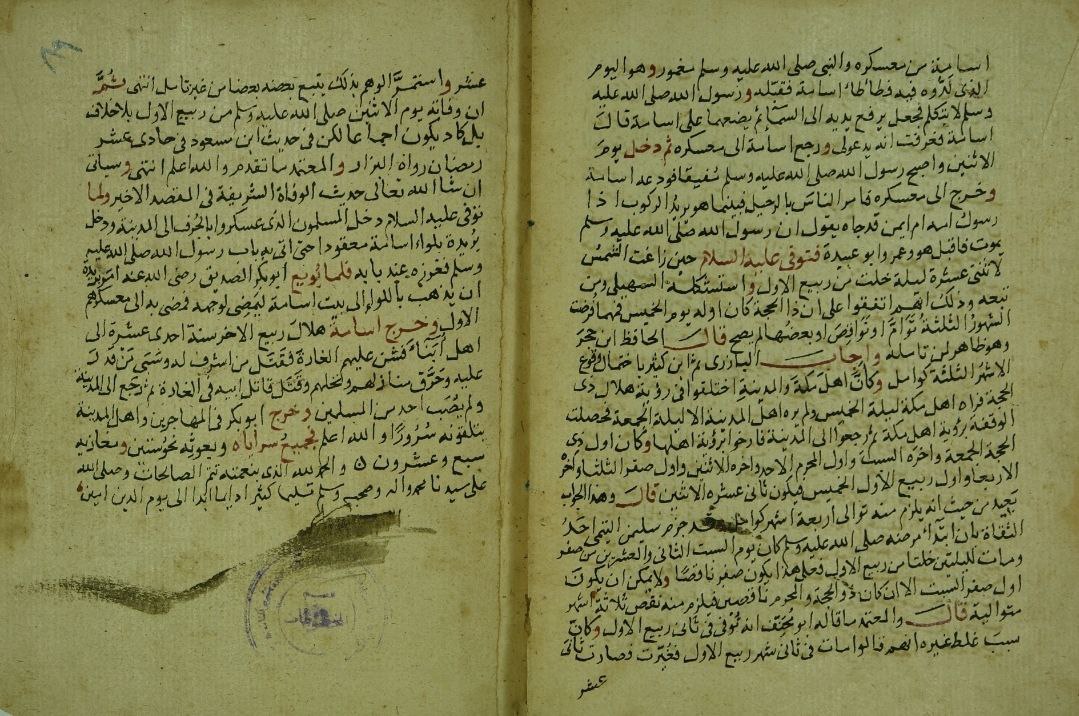 اسامة من معسكره والنبي صلى الله عليه وسلم مغمور وهو اليوم
الذي لدوه فيه فطأطأ اسامة فقبله ورسول الله صلى الله عليه
وسلم لا يتكلم فجعل يرفع يديه الى السماء ثم يضعهما على اسامة قال
اسامة فعرفت انه يدعو لي ورجع اسامة الى معسكره ثم دخل يوم
الاثنين واصبح رسول الله صلى الله عليه وسلم مفيقا فودعه اسامة
وخرج الى معسكره فامر الناس بالرحيل فبينما هو يريد الركوب اذا
رسول امه ام ايمن قد جاءه يقول ان رسول الله صلى الله عليه وسلم
يموت فاقبل هو وعمر وابو عبيدة فتوفي عليه السلام حين زاغت الشمس
لاثنتي عشرة ليلة خلت من ربيع الاول واستشكله السهيلي ومن
تبعه وذلك انهم اتفقوا على ان ذا الحجة كان اوله يوم الخميس فمهما فرضت
الشهور الثلثة توام او نواقص او بعضها لم يصح قال الحافظ ابن حجر
وهو ظاهر لمن تامله واجاب البارزي ثم ابن كثير باحتمال وقوع
الاشهر الثلثة كوامل وكان اهل مكة والمدينة اختلفوا في رؤية هلال ذي
الحجة فراه اهل مكة ليلة الخميس ولم يره اهل المدينة الا ليلة الجمعة فحصلت
الوقفة برؤية اهل مكة ثم رجعوا الى المدينة فارخوا برؤية اهلها وكان اول ذي
الحجة الجمعة واخره السبت واول المحرم الاحد واخره الاثنين واول صفر الثلثا واخره
الاربعا واول ربيع الاول الخميس فيكون ثاني عشره الاثنين قال وهذا الجواب
بعيد من حيث انه يلزم منه توالي اربعة اشهر كوامل وقد جزم سليمن التيمي احد
الثقاة بان ابتداء مرضه صلى الله عليه وسلم كان يوم السبت الثاني والعشرين من صفر
ومات لليلتين خلتا من ربيع الاول فعلى هذا يكون صفر ناقصا ولا يمكن ان يكون
اول صفر السبت الا ان كان ذو الحجة والمحرم ناقصين فيلزم منه نقص ثلاثة اشهر
متوالية قال والمعتمد ما قاله ابو مخنف انه توفي في ثاني ربيع الاول وكان
سبب غلط غيره انهم قالوا مات في ثاني شهر ربيع الاول فغيرت فصارت ثاني
عشر
عشر واستمر الوهم بذلك يتبع بعضه بعضا من غير تامل انتهى ثم
ان وفاته يوم الاثنين صلى الله عليه وسلم من ربيع الاول بلا خلاف
بل كاد يكون اجماعا لكن في حديث ابن مسعود في حادي عشر
رمضان رواه البزار والمعتمد ما تقدم والله اعلم انتهى وسياتي
ان شا الله تعالى حديث الوفاة الشريفة في المقصد الاخير ولما
توفي عليه السلام دخل المسلمون الذي عسكروا بالجرف الى المدينة ودخل
بريدة بلواء اسامة معقودا حتى اتى به باب رسول الله صلى الله عليه
وسلم فغرزه عند بابه فلما بويع ابو بكر الصديق رضي الله عنه امر بريدة
ان يذهب باللواء الى بيت اسامة ليمضي لوجهه فمضى به الى معسكرهم
الاول وخرج اسامة هلال ربيع الاخر سنة احدى عشرة الى
اهل ابناء فشن عليهم الغارة فقتل من اشرف له وسبى من قدر
عليه وحرق منازلهم ونخلهم وقتل قاتل ابيه في الغارة ثم رجع الى المدينة
ولم يصب احد من المسلمين وخرج ابو بكر في المهاجرين واهل المدينة
يتلقونه سرورا والله اعلم فجميع سراياه وبعوثه نحو ستين ومغازيه
سبع وعشرون والحمد لله الذي بنعمته تتم الصالحات وصلى الله
على سيدنا محمد واله وصحبه وسلم تسليما كثيرا دائما ابدا الى يوم الدين امين